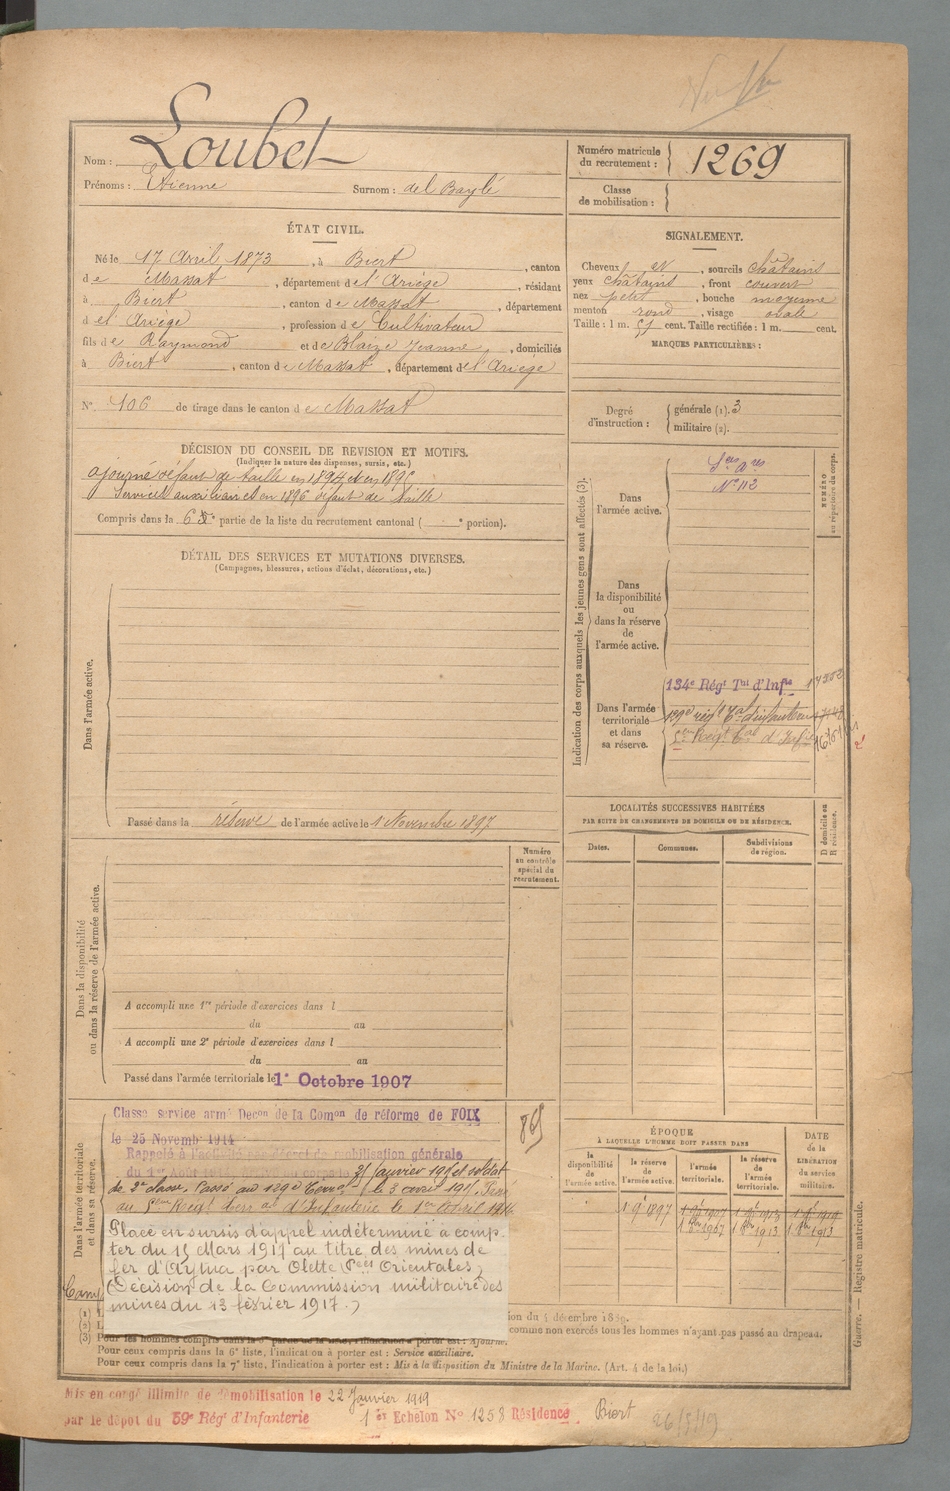 Nom : Loubet
Prénoms : Etienne Surnom : del Baylé
Numéro matricule du recrutement : 1269
Classe de mobilisation :
ÉTAT CIVIL.
Né le 17 Avril 1873, à Biert, canton
de Massat, département de l'Ariège, résidant
à Biert, canton de Massat, département
de l'Ariège, profession de Cultivateur
fils de Raymond et de Blaize Jeanne, domiciliés
à Biert, canton de Massat, département de l'Ariège
N° 106 de tirage dans le canton de Massat
SIGNALEMENT.
Cheveux et, sourcils châtains
yeux châtains, front couvert
nez petit, bouche moyenne
menton rond, visage ovale
Taille : 1 m. 51 cent. Taille rectifiée : 1 m. cent.
MARQUES PARTICULIÈRES :
Degré d'instruction : générale (1). 3
militaire (2).
DÉCISION DU CONSEIL DE REVISION ET MOTIFS.
(Indiquer la nature des dispenses, sursis, etc.)
ajourné défaut de taille en 1894 et en 1895
Services auxiliaires en 1896 défaut de taille
Compris dans la 6e partie de la liste du recrutement cantonal ( e portion).
DÉTAIL DES SERVICES ET MUTATIONS DIVERSES.
(Campagnes, blessures, actions d'éclat, décorations, etc.)
Dans l'armée active.
Passé dans la réserve de l'armée active le 1 Novembre 1897
Indication des corps auxquels les jeunes gens sont affectés (3).
NUMÉRO au répertoire du corps.
Dans l'armée active.
Ses ares
N° 112
Dans la disponibilité ou dans la réserve de l'armée active.
Dans l'armée territoriale et dans sa réserve.
134e Régt Tal d'Infie
129e rég t Tal d'infanterie
5me Régt Tal d'Infie
LOCALITÉS SUCCESSIVES HABITÉES
PAR SUITE DE CHANGEMENTS DE DOMICILE OU DE RÉSIDENCE.
Dates. Communes. Subdivisions de région. D domicile ou R résidence.
Numéro au contrôle spécial du recrutement.
Dans la disponibilité ou dans la réserve de l'armée active.
A accompli une 1re période d'exercices dans l
du au
A accompli une 2e période d'exercices dans l
du au
Passé dans l'armée territoriale le 1er Octobre 1907
Dans l'armée territoriale et dans sa réserve.
Classé service armé Decon de la Comon de réforme de FOIX
le 25 Novemb 1914
Rappelé à l'activité par décret de mobilisation générale
du 1er Août 1914. Arrivé au corps le 21 janvier 1915 et soldat
de 2e classe. Passé au 129e Terral le 3 avril 1915. Passé
au 5ème Régt terr al d'Infanterie le 1er Avril 1916
865
Placé en sursis d'appel indéterminé à comp-
ter du 15 Mars 1917 au titre des mines de
fer d'Aytua par Olette (Pées Orientales)
(Décision de la Commission militaire des
mines du 13 février 1917.)
Camp
ÉPOQUE
À LAQUELLE L'HOMME DOIT PASSER DANS
la disponibilité de l'armée active. la réserve de l'armée active. l'armée territoriale. la réserve de l'armée territoriale. DATE de la LIBÉRATION du service militaire.
1 9 1897 1 9 1907 1 9 1913 1 9 1919
1 8bre 1907 1 8bre 1913 1 8bre 1913
(1) L
(2) L
ion du 4 décembre 1889.
comme non exercés tous les hommes n'ayant pas passé au drapeau.
(3) Pour les hommes compris dans la 5e partie de la liste, l'indication à porter est : Ajourné.
Pour ceux compris dans la 6e liste, l'indication à porter est : Service auxiliaire.
Pour ceux compris dans la 7e liste, l'indication à porter est : Mis à la disposition du Ministre de la Marine. (Art. 4 de la loi.)
Guerre. — Registre matricule.
Mis en congé illimité de démobilisation le 22 Janvier 1919
par le dépôt du 59e Régt d'Infanterie 1er Echelon N° 1258 Résidence Biert
26/5/19